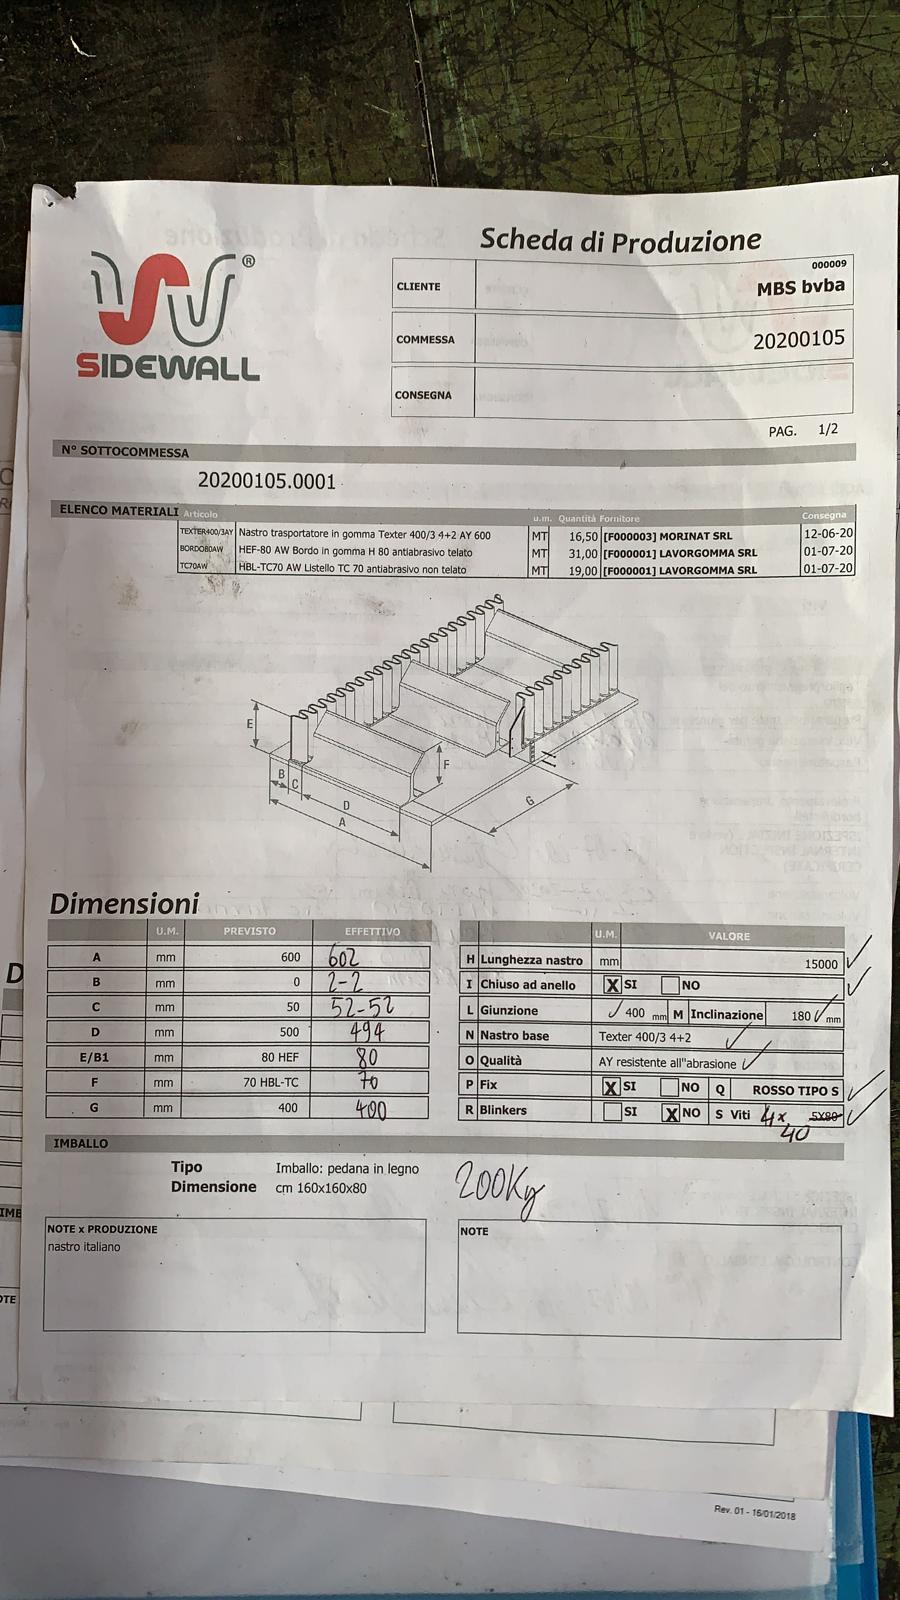 Scheda di Produzione
®
SIDEWALL
000009
CLIENTE MBS bvba
COMMESSA 20200105
CONSEGNA
PAG. 1/2
N° SOTTOCOMMESSA
20200105.0001
ELENCO MATERIALI Articolo u.m. Quantità Fornitore Consegna
TEXTER400/3AY Nastro trasportatore in gomma Texter 400/3 4+2 AY 600 MT 16,50 [F000003] MORINAT SRL 12-06-20
BORDO80AW HEF-80 AW Bordo in gomma H 80 antiabrasivo telato MT 31,00 [F000001] LAVORGOMMA SRL 01-07-20
TC70AW HBL-TC70 AW Listello TC 70 antiabrasivo non telato MT 19,00 [F000001] LAVORGOMMA SRL 01-07-20
E
B
C
D
A
F
G
Dimensioni
U.M. PREVISTO EFFETTIVO
A mm 600 602
B mm 0 2-2
C mm 50 52-52
D mm 500 494
E/B1 mm 80 HEF 80
F mm 70 HBL-TC 70
G mm 400 400
U.M. VALORE
H Lunghezza nastro mm 15000
I Chiuso ad anello X SI NO
L Giunzione 400 mm M Inclinazione 180 mm
N Nastro base Texter 400/3 4+2
O Qualità AY resistente all"abrasione
P Fix X SI NO Q ROSSO TIPO S
R Blinkers SI X NO S Viti 4x 5X80
40
IMBALLO
Tipo Imballo: pedana in legno
Dimensione cm 160x160x80
200Kg
NOTE x PRODUZIONE
nastro italiano
NOTE
Rev. 01 - 16/01/2018